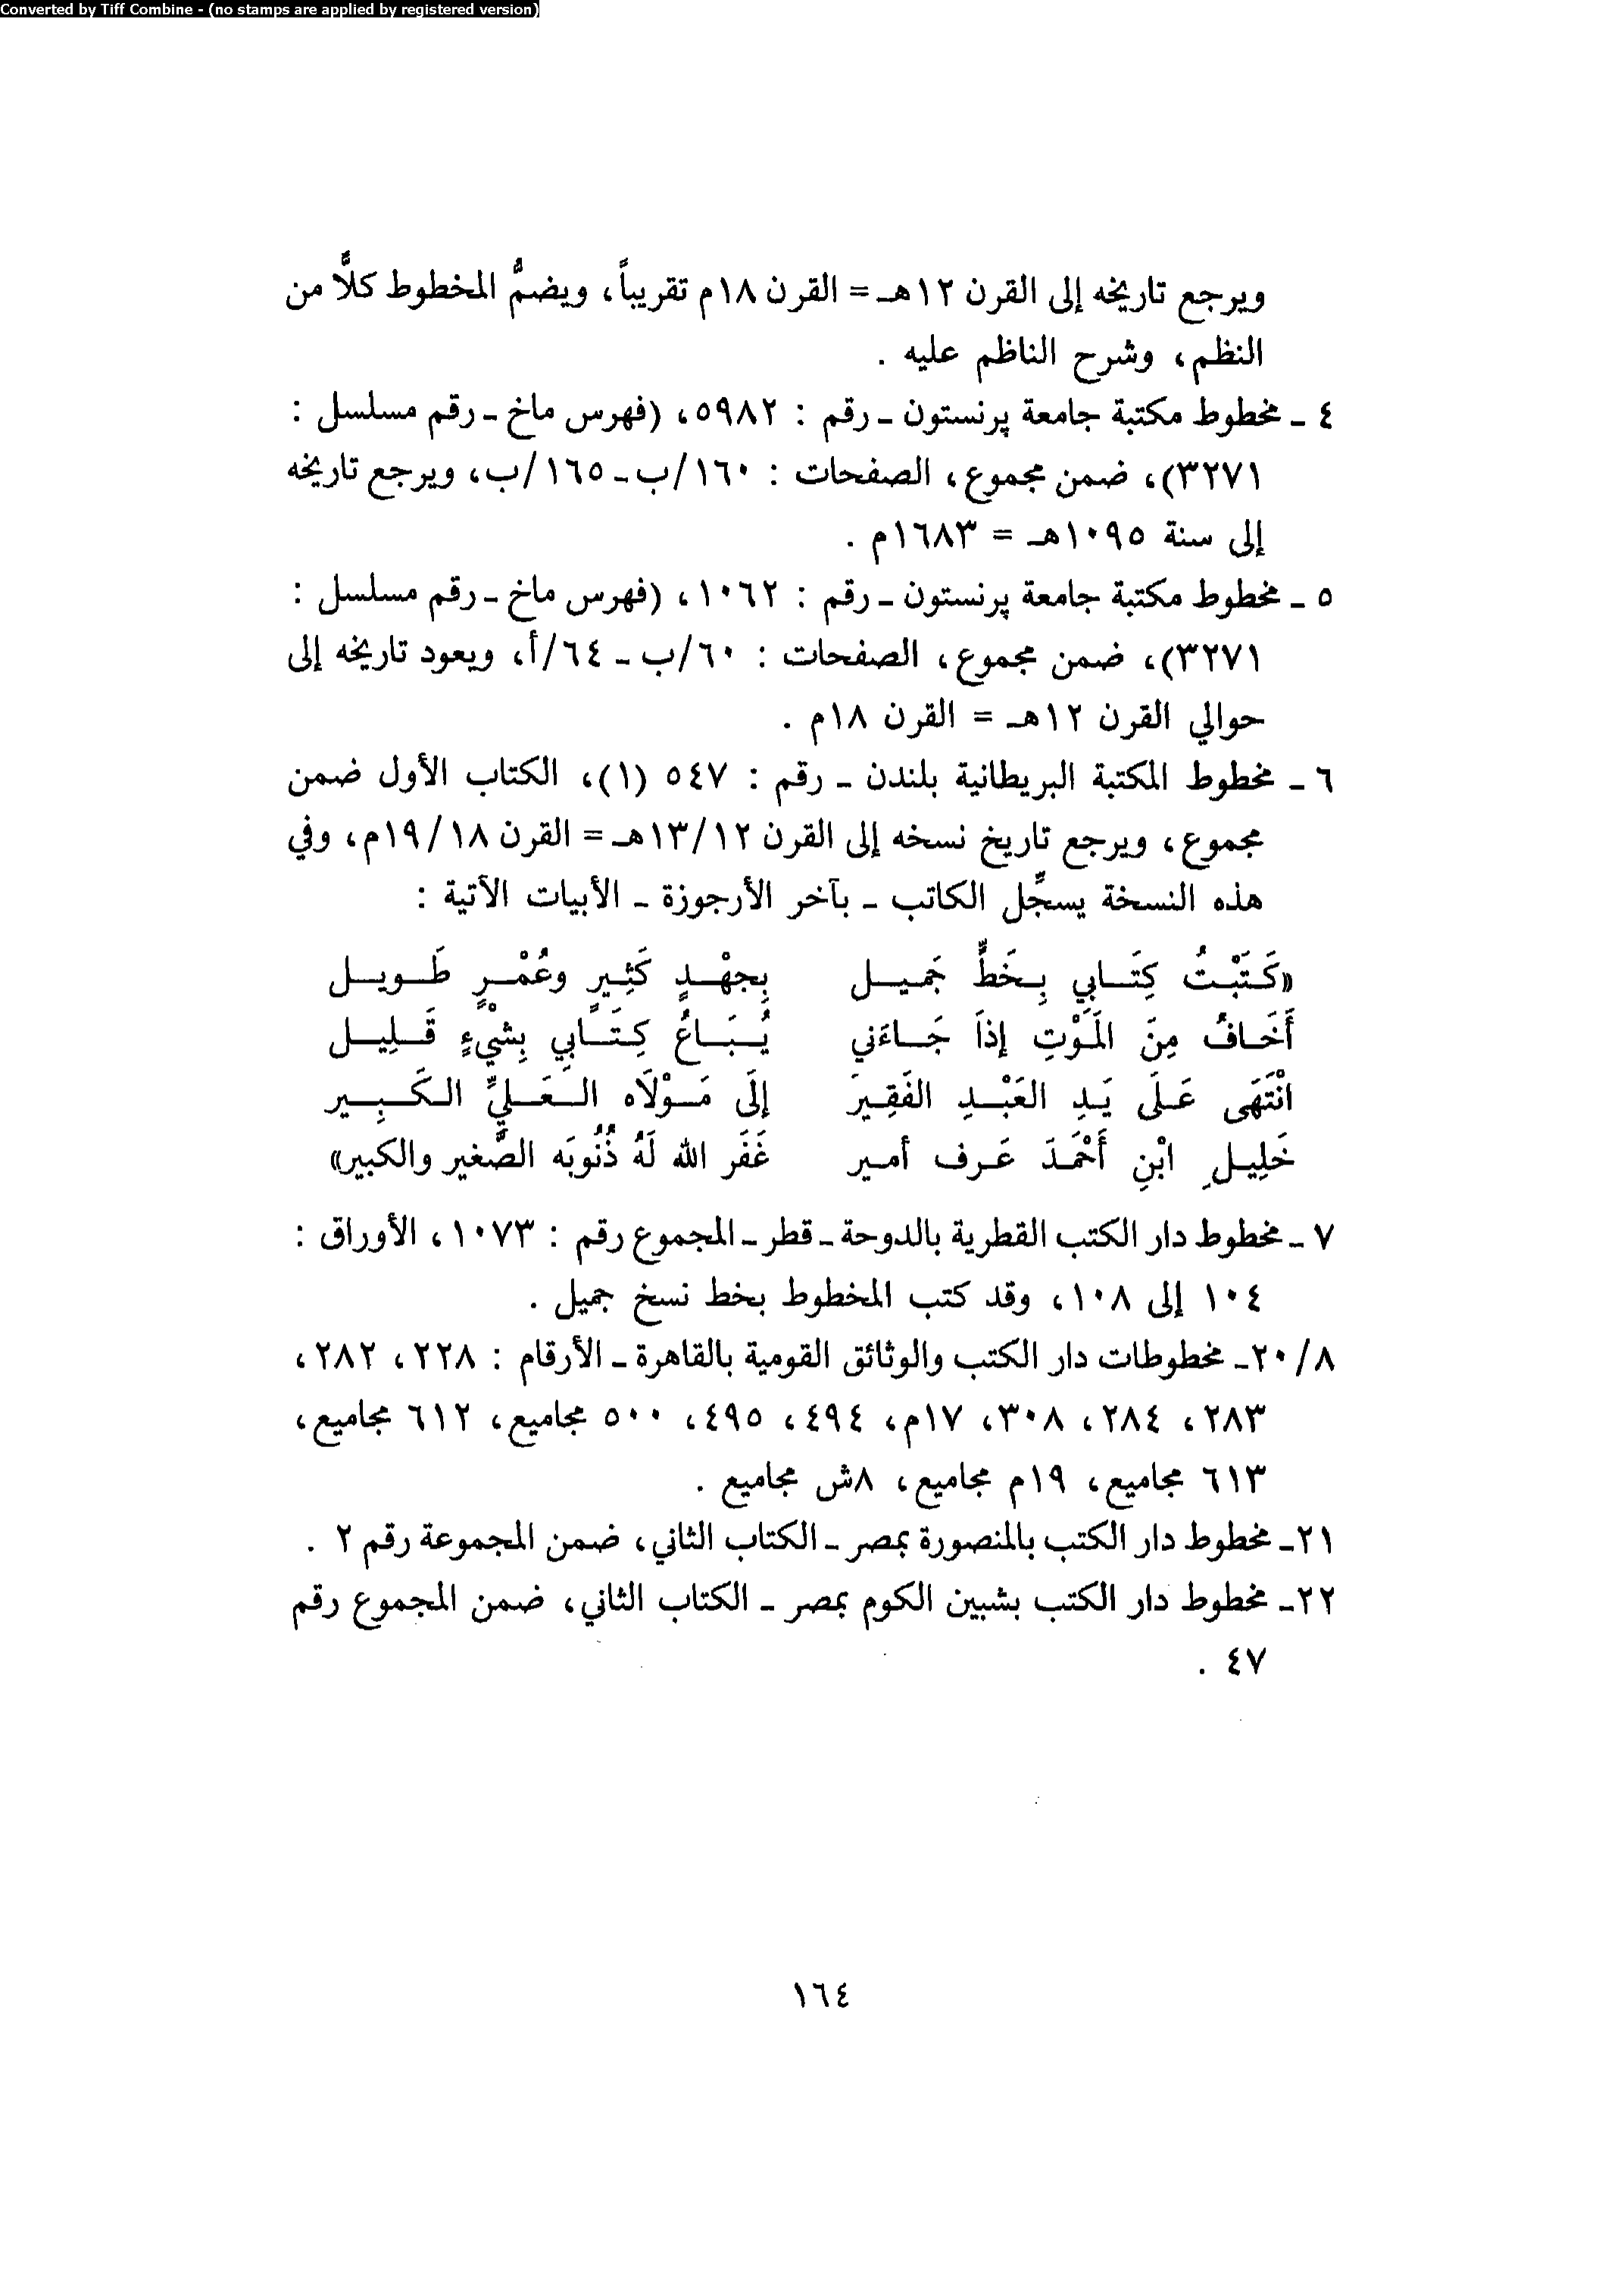 Converted by Tiff Combine - (no stamps are applied by registered version)
ويرجع تاريخه إلى القرن ١٢هـ = القرن ١٨م تقريباً، ويضمُّ المخطوط كلاًّ من
النظم، وشرح الناظم عليه .
٤ ـ مخطوط مكتبة جامعة پرنستون ـ رقم : ٥٩٨٢، (فهرس ماخ ـ رقم مسلسل :
٣٢٧١)، ضمن مجموع، الصفحات : ١٦٠/ب ـ ١٦٥/ب، ويرجع تاريخه
إلى سنة ١٠٩٥هـ = ١٦٨٣م .
٥ ـ مخطوط مكتبة جامعة پرنستون ـ رقم : ١٠٦٢، (فهرس ماخ ـ رقم مسلسل :
٣٢٧١)، ضمن مجموع، الصفحات : ٦٠/ب ـ ٦٤/أ، ويعود تاريخه إلى
حوالي القرن ١٢هـ = القرن ١٨م .
٦ ـ مخطوط المكتبة البريطانية بلندن ـ رقم : ٥٤٧ (١)، الكتاب الأول ضمن
مجموع، ويرجع تاريخ نسخه إلى القرن ١٣/١٢هـ = القرن ١٩/١٨م، وفي
هذه النسخة يسجِّل الكاتب ـ بآخر الأرجوزة ـ الأبيات الآتية :
«كَتَبْتُ كِتَابِي بِخَطٍّ جَميل بِجهْدٍ كَثِيرٍ وعُمْرٍ طَويل
أَخَافُ مِنَ المَوْتِ إذَا جَاءَني يُبَاعُ كِتَابِي بِشَيْءٍ قَلِيل
انْتَهَى عَلَى يَدِ العَبْدِ الفَقِيرَ إلَى مَوْلَاه العَليِّ الكَبِير
خَلِيلِ ابْنِ أَحْمَدَ عَرف أمير غَفَر الله لَهُ ذُنُوبَه الصَّغير والكبير»
٧ ـ مخطوط دار الكتب القطرية بالدوحة ـ قطر ـ المجموع رقم : ١٠٧٣، الأوراق :
١٠٤ إلى ١٠٨، وقد كتب المخطوط بخط نسخ جميل .
٢٠/٨ـ مخطوطات دار الكتب والوثائق القومية بالقاهرة ـ الأرقام : ٢٢٨، ٢٨٢،
٢٨٣، ٢٨٤، ٣٠٨، ١٧م، ٤٩٤، ٤٩٥، ٥٠٠ مجاميع، ٦١٢ مجاميع،
٦١٣ مجاميع، ١٩م مجاميع، ٨ش مجاميع .
٢١ـ مخطوط دار الكتب بالمنصورة بمصر ـ الكتاب الثاني، ضمن المجموعة رقم ٢ .
٢٢ـ مخطوط دار الكتب بشبين الكوم بمصر ـ الكتاب الثاني، ضمن المجموع رقم
٤٧ .
١٦٤